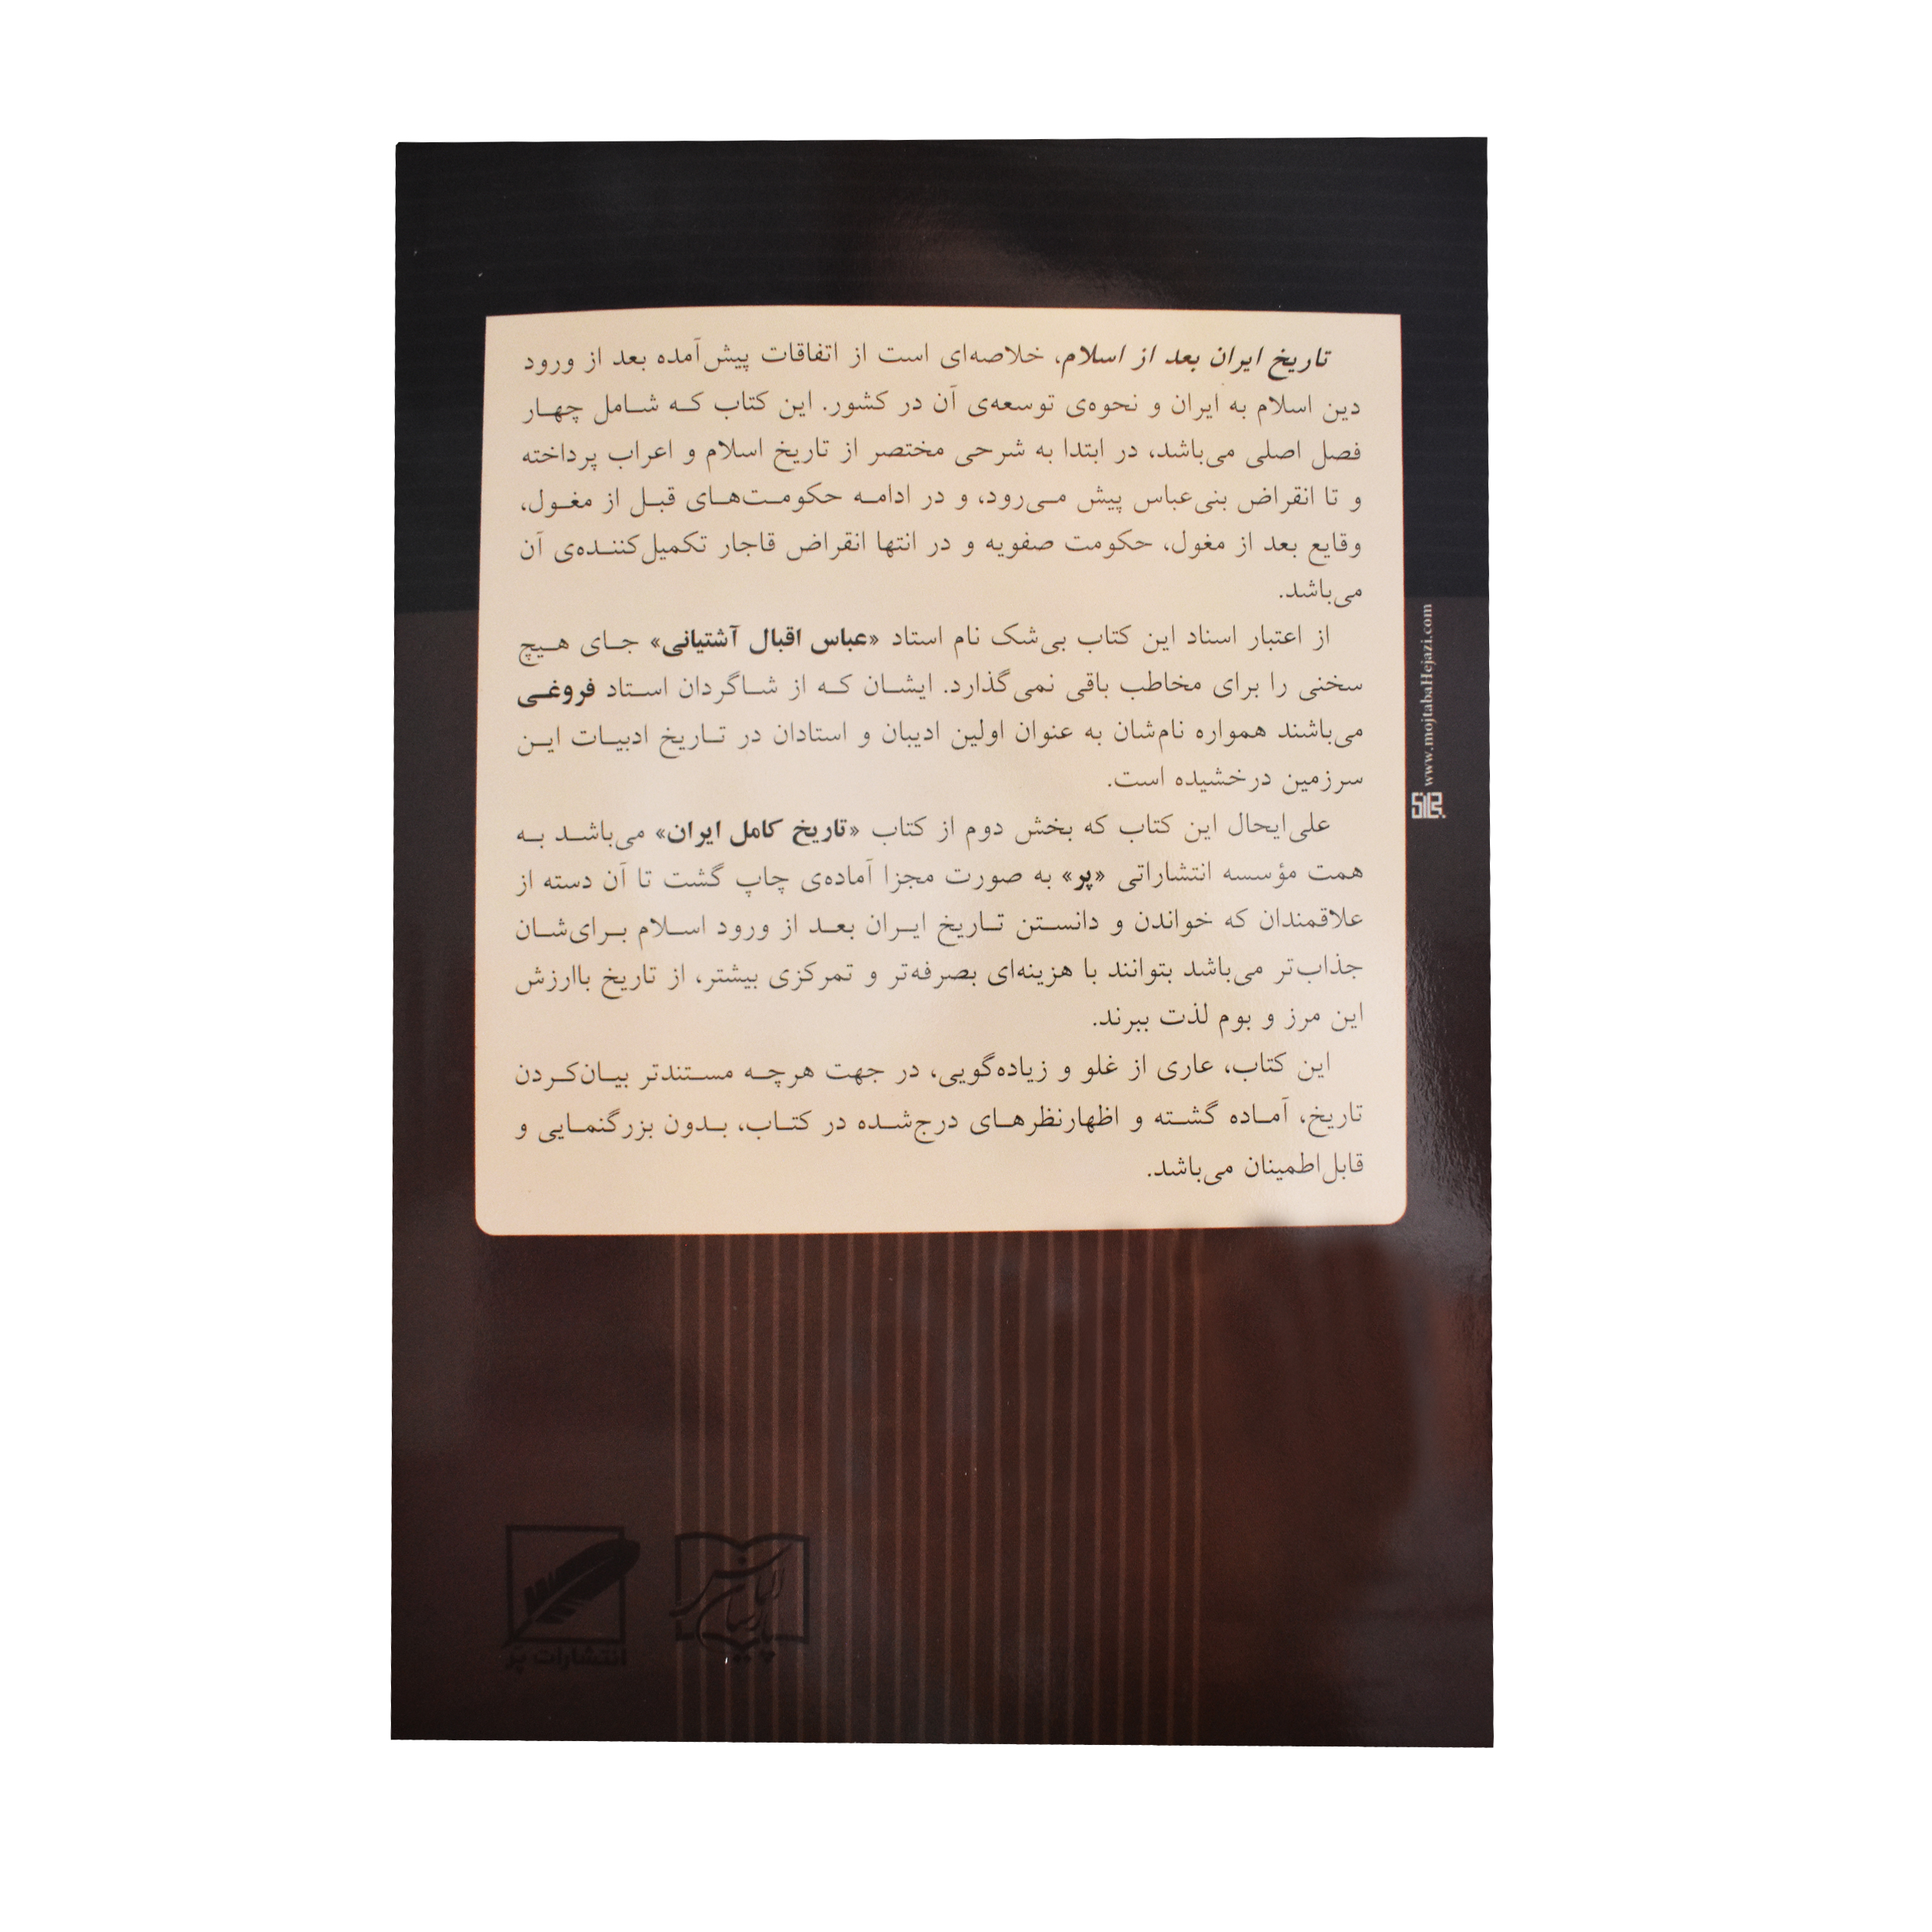 تاریخ ایران بعد از اسلام، خلاصه‌ای است از اتفاقات پیش‌آمده بعد از ورود
دین اسلام به ایران و نحوه‌ی توسعه‌ی آن در کشور. این کتاب که شامل چهار
فصل اصلی می‌باشد، در ابتدا به شرحی مختصر از تاریخ اسلام و اعراب پرداخته
و تا انقراض بنی‌عباس پیش می‌رود، و در ادامه حکومت‌های قبل از مغول،
وقایع بعد از مغول، حکومت صفویه و در انتها انقراض قاجار تکمیل‌کننده‌ی آن
می‌باشد.
از اعتبار اسناد این کتاب بی‌شک نام استاد «عباس اقبال آشتیانی» جای هیچ
سخنی را برای مخاطب باقی نمی‌گذارد. ایشان که از شاگردان استاد فروغی
می‌باشند همواره نام‌شان به عنوان اولین ادیبان و استادان در تاریخ ادبیات این
سرزمین درخشیده است.
علی‌ایحال این کتاب که بخش دوم از کتاب «تاریخ کامل ایران» می‌باشد به
همت مؤسسه انتشاراتی «پر» به صورت مجزا آماده‌ی چاپ گشت تا آن دسته از
علاقمندان که خواندن و دانستن تاریخ ایران بعد از ورود اسلام برای‌شان
جذاب‌تر می‌باشد بتوانند با هزینه‌ای بصرفه‌تر و تمرکزی بیشتر، از تاریخ باارزش
این مرز و بوم لذت ببرند.
این کتاب، عاری از غلو و زیاده‌گویی، در جهت هرچه مستندتر بیان‌کردن
تاریخ، آماده گشته و اظهارنظرهای درج‌شده در کتاب، بدون بزرگنمایی و
قابل‌اطمینان می‌باشد.
www.mojtabaHejazi.com
انتشارات پر